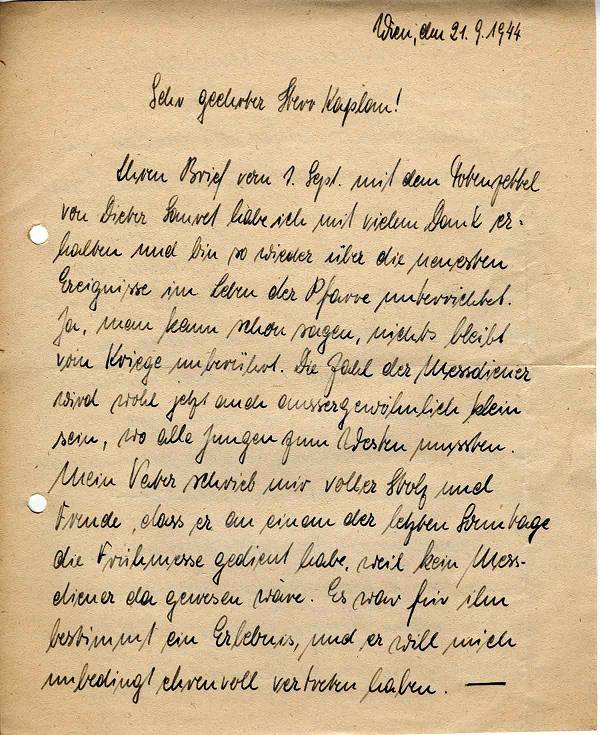 Wien, den 21. 9. 1944
Sehr geehrter Herr Kaplan!
Ihren Brief vom 1. Sept. mit dem Totenzettel
von Dieter habe ich mit vielem Dank er-
halten und bin so wieder über die neuesten
Ereignisse im Leben der Pfarre unterrichtet.
Ja, man kann schon sagen, nichts bleibt
vom Kriege unberührt. Die Zahl der Messdiener
wird wohl jetzt auch aussergewöhnlich klein
sein, wo alle Jungen zum Westen mussten.
Mein Vater schrieb mir voller Stolz und
Freude, dass er an einem der letzten Sonntage
die Frühmesse gedient habe, weil kein Mess-
diener da gewesen wäre. Es war für ihn
bestimmt ein Erlebnis, und er will mich
unbedingt ehrenvoll vertreten haben. —